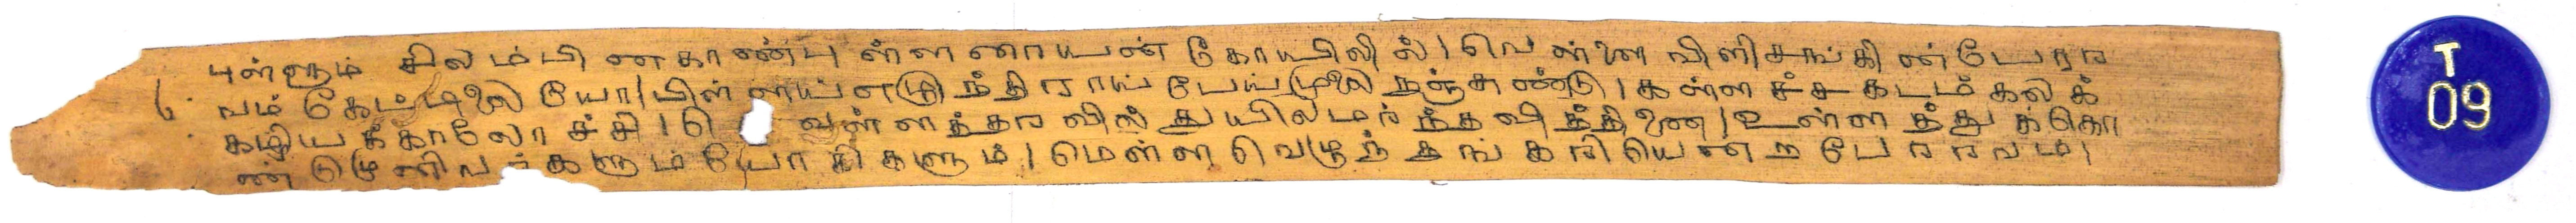 புள்ளும் சிலம்பினகாண்புள்ளரையன் கோயிலில்। வெள்ளை விளிசங்கின்பேரர
வம் கேட்டிலையோ। பிள்ளாய்எழுந்திராய் பேய்முலை நஞ்சுண்டு। கள்ள ச்சகடம் கலக்
கழியக்காலோச்சி। வெ வள்ளத்தரவில் துயிலமர்ந்தவித்தினை। உள்ளத்துக்கொ
ண்டுமுனிவர்களும்யோகிகளும்। மெள்ளவெழுந்தங்கரியென்றபேரரவம்।
T
09